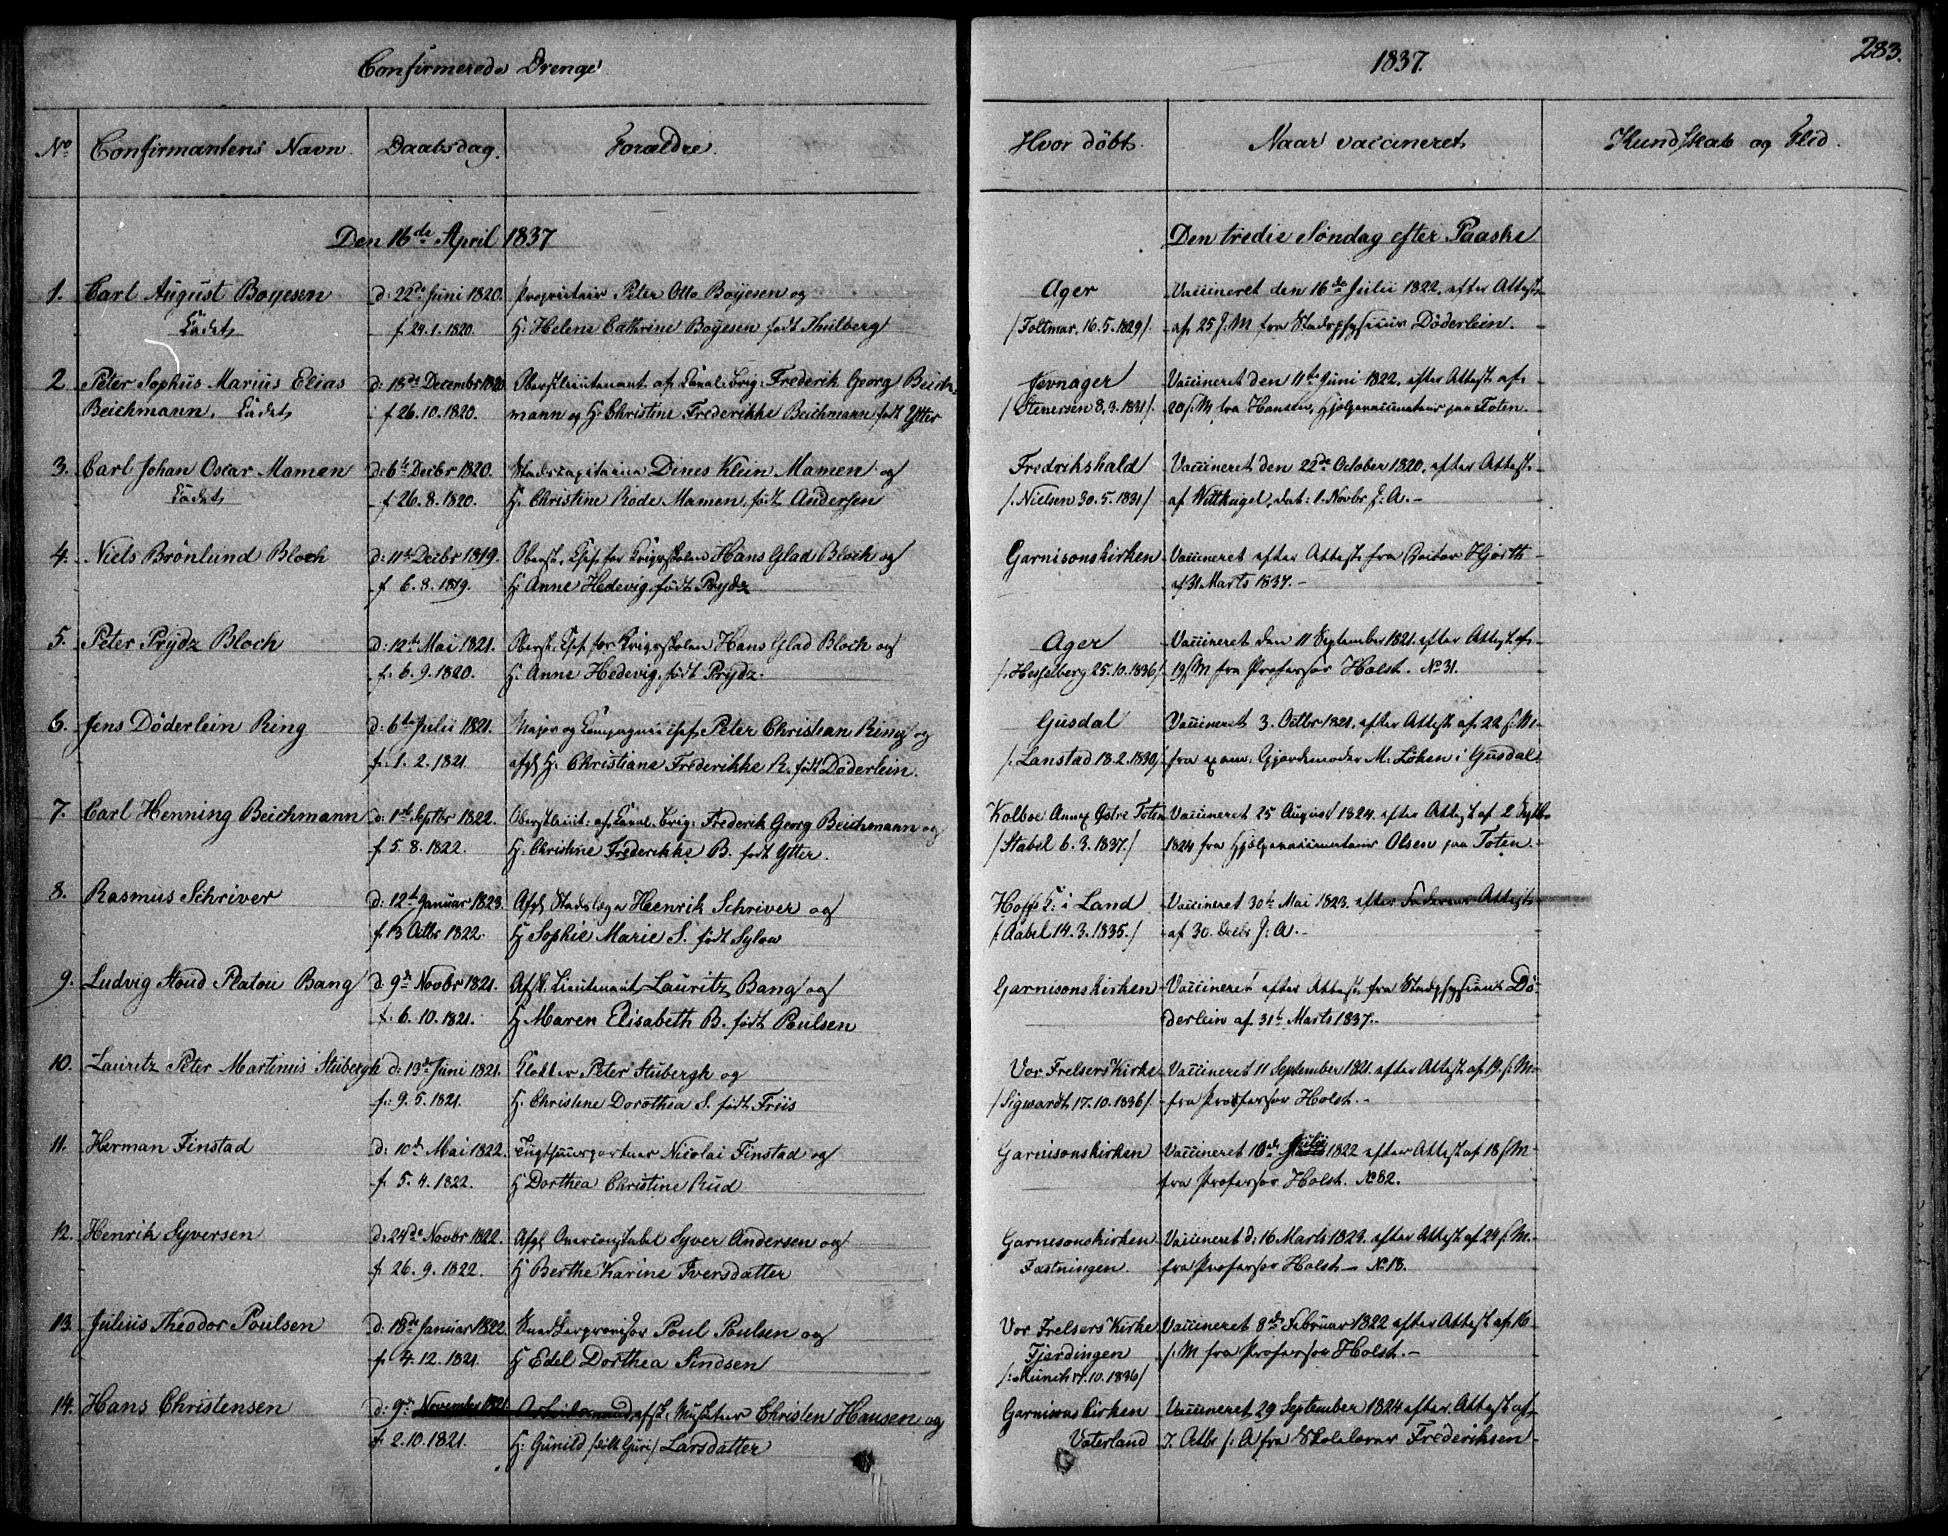 Confirmerede Drenge
1837.
283.
No Confirmantens Navn. Daabsdag. Forældre. Hvor døbt. Naar vaccineret Kundskab og Flid.
Den 16de April 1837 Den tredie Søndag efter Paaske
1. Carl August Boyesen d: 22de Juni 1820. Proprietair Peter Otto Boyesen og Ager Vaccineret den 16de Julii 1822, efter Attest
Cadet f 24.1.1820. H: Helene Cathrine Boyesen født Thulberg /Foltmar, 16.5.1829/. af 25 J.M fra Stadsphysicus Döderlein.
2 Peter Sophus Marius Elias d: 18de Decembr 1820 Oberstlieutenant af Caval. brig: Frederik Georg Beich- Jevnager Vaccineret den 11te Juni 1822, efter Attest af
Beichmann. Cadet f 26.10.1820. mann og H: Christine Frederikke Beichmann født Ytter /Stenersen 8.3.1831/. 20 s.M fra Hansen, Hjælpevaccinateur paa Toten.
3. Carl Johan Oscar Mamen d: 6te Decbr 1820. Stadscapitain Dines Klein Mamen og Fredrikshald Vaccineret den 22de October 1820, efter Attest
Cadet f 26.8.1820. H: Christine Rode Mamen, født Andersen /:Nielsen 30.5.1831/ af Wittkugel, dat: 1. Novbr s: A.-
4. Niels Brönlund Bloch d: 11te Decbr 1819. Oberst, Chef for Krigsskolen Hans Glad Bloch og Garnisonskirken Vaccineret efter Attest fra Doctor Hjorth
f 6.8.1819. H: Anne Hedevig, født Prydz af 31 Marts 1837.-
5. Peter Prydz Bloch d: 12te Mai 1821. Oberst, Chef for Krigsskolen Hans Glad Bloch og Ager Vaccineret den 11 September 1821. efter Attest af
f. 6.9.1820. H: Anne Hedevig, født Prydz. /:Hesselberg 25.10.1836/. 19 s.M fra Professor Holst. No 31.
6. Jens Döderlein Ring d: 6te Julii 1821. Major og Compagniechef Peter Christian Ring og Gusdal Vaccineret 3. Octbr 1821, efter Attest af 22 s.M.
f. 1.2.1821. afg. H: Christiane Frederikke R. født Döderlein. /:Lanstad 18.2.1830/. fra exam. Gjordemoder M. Löken i Gusdal
7. Carl Henning Beichmann d: 1ste Septbr 1822. Oberstlieut: af Caval. brig: Frederik Georg Beichmann og Kolboe Annex Østre Toten Vaccineret 25 August 1824. efter Attest af 2 Septbr
f 5.8.1822. H: Christine Frederikke B. født Ytter. /Stabel 6.3.1837./ 1824 fra Hjælpevaccinateur Olsen paa Toten.
8. Rasmus Schriver d: 12te Januar 1823. Afg. Stadslæge Henrik Schriver og Hoffs K: i Land Vaccineret 30te Mai 1823. efter Faderens Attest
f. 13 Octbr 1822. H Sophie Marie S. født Sylow /:Aabel 14.3.1835./ af 30. Decbr s: A.-
9. Ludvig Stoud Platou Bang d. 9de Novbr 1821. Afsk. Lieutenant Lauritz Bang og Garnisonskirken Vaccineret efter Attest fra Stadsphysicus Dö-
f. 6.10.1821. H Maren Elisabeth B. født Poulsen derlein af 31te Marts 1837.
10. Lauritz Peter Martinus Stubergh d: 13de Juni 1821. Klokker Peter Stubergh og Vor Frelsers Kirke Vaccineret 11 September 1821. efter Attest af 19. s.M.
f: 9.5.1821. H: Christine Dorothea S. født Friis /Sigwardt 17.10.1836/. fra Professor Holst.-
11. Herman Finstad d: 10de Mai 1822. Tugthuusportner Nicolai Finstad og Garnisonskirken Vaccineret 10de Julii 1822 efter Attest af 18 s.M
f. 5.4.1822. H Dorthea Christine Rud fra Professor Holst. No 82.
12. Henrik Syversen d: 24de Novbr 1822. Afg. Overconstabel Syver Andersen og Garnisonskirken Vaccineret d: 16 Marts 1823. efter Attest af 24 s.M.
f 26.9.1822. H Berthe Karine Iversdatter Fæstningen fra Professor Holst - No 18.
13. Julius Theodor Poulsen d. 18de Januar 1822. Poul Poulsen og Vor Frelsers Kirke Vaccineret 8de Februar 1822 efter Attest af 16
f. 4.12.1821. H Edel Dorthea Sindsen Fjerdingen s.M fra Professor Holst.-
/:Münch 17.10.1836/
14. Hans Christensen d: 9de November 1821 Arbeidsmand, afsk. Musketeer Christen Hansen og Garnisonskirken Vaccineret 29 September 1824 efter Attest af
f. 2.10.1821. H: Gunild /kaldt Guri/ Larsdatter Vaterland 7. Octbr s: A fra Skolelærer Frederiksen